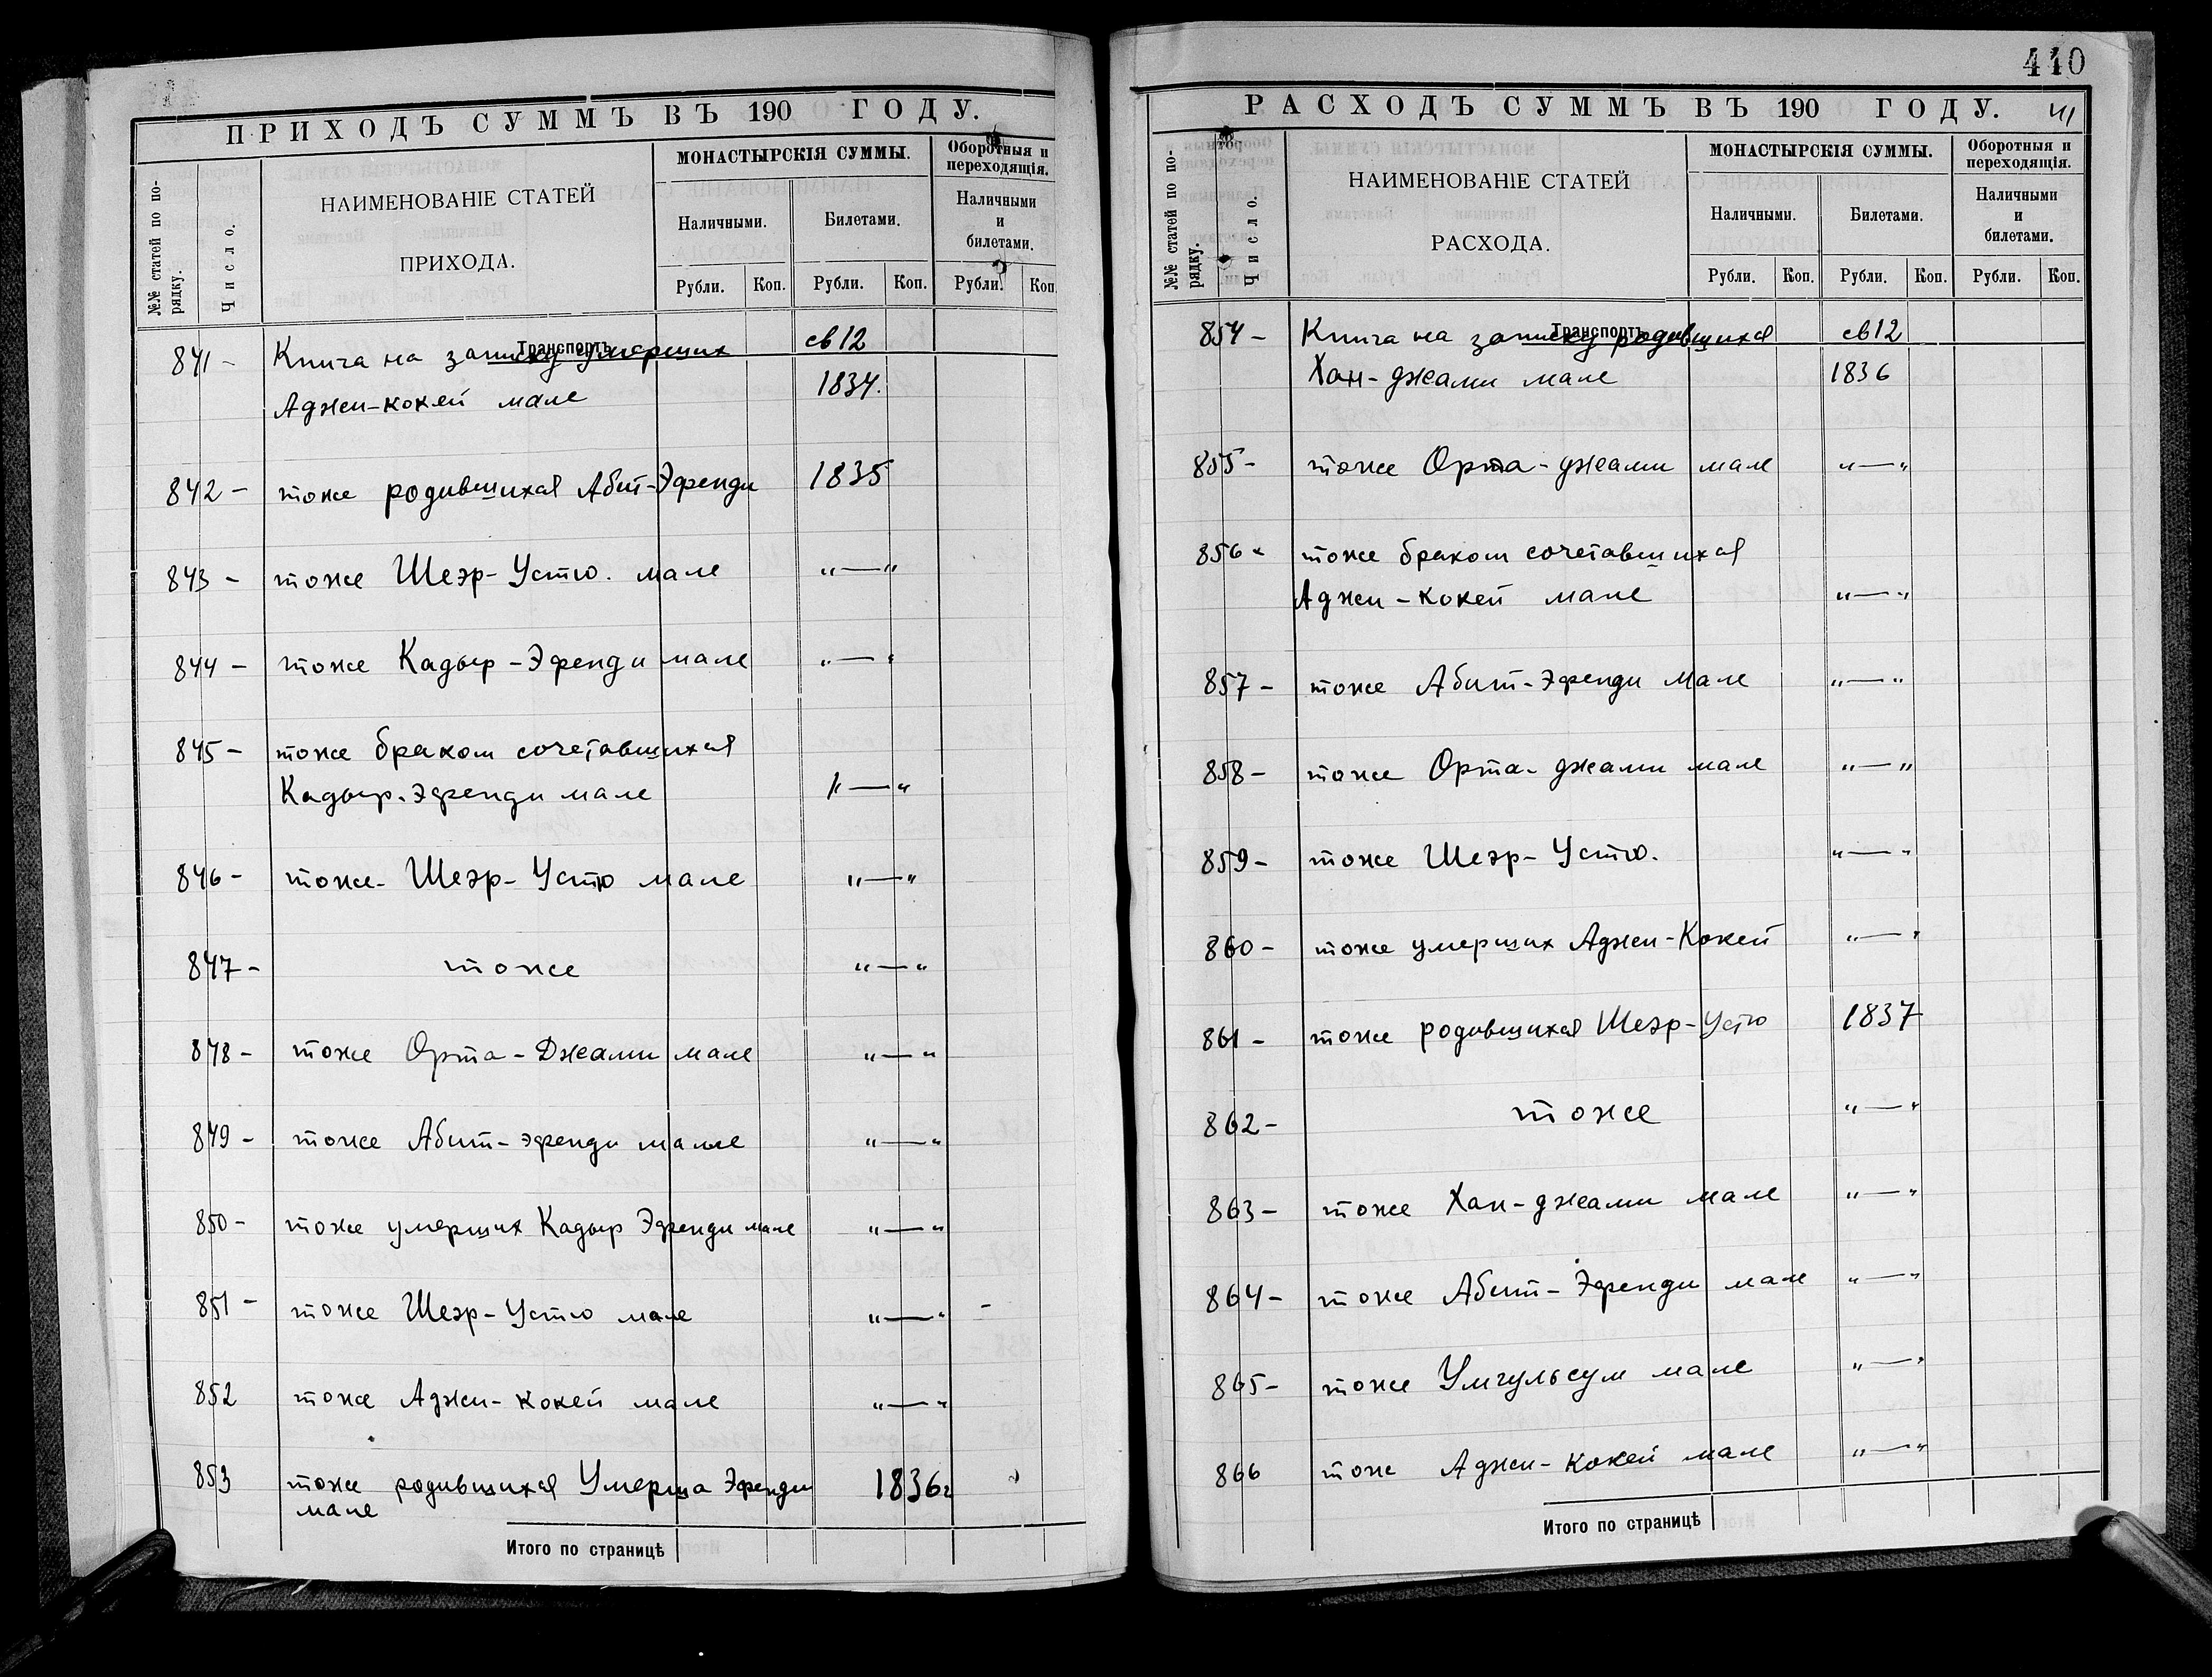 ПРИХОДЪ СУММЪ ВЪ 190 ГОДУ.
№№ статей по порядку.
Число.
НАИМЕНОВАНІЕ СТАТЕЙ
ПРИХОДА.
МОНАСТЫРСКІЯ СУММЫ.
Наличными.
Билетами.
Оборотныя и
переходящія.
Наличными
и
билетами.
Рубли. Коп. Рубли. Коп. Рубли. Коп.
Транспортъ
841 - Книга на записку умерших св 12
Аджи-кокей мале 1834.
842 - тоже родившихся Абит-Эфенди 1835
843 - тоже Шеэр-Устю. мале "—"
844 - тоже Кадыр-Эфенди мале "—"
845 - тоже браком сочетавшихся
Кадыр-эфенди мале "—"
846 - тоже- Шеэр-Устю мале "—"
847 - тоже "—"
848 - тоже Орта-Джами мале "—"
849 - тоже Абит-эфенди мале "—"
850 - тоже умерших Кадыр Эфенди мале "—"
851 - тоже Шеэр-Устю мале "—"
852 тоже Аджи-кокей мале "—"
853 тоже родившихся Умерша Эфенди 1836г
мале
Итого по страницѣ
410
41
РАСХОДЪ СУММЪ ВЪ 190 ГОДУ.
№№ статей по порядку.
Число.
НАИМЕНОВАНІЕ СТАТЕЙ
РАСХОДА.
МОНАСТЫРСКІЯ СУММЫ.
Наличными.
Билетами.
Оборотныя и
переходящія.
Наличными
и
билетами.
Рубли. Коп. Рубли. Коп. Рубли. Коп.
Транспортъ
854 - Книга на записку родившихся св 12
Хан-джами мале 1836
855 - тоже Орта-джами мале "—"
856 - тоже браком сочетавшихся
Аджи-кокей мале "—"
857 - тоже Абит-эфенди мале "—"
858 - тоже Орта-джами мале "—"
859 - тоже Шеэр-Устю. "—"
860 - тоже умерших Аджи-Кокей "—"
861 - тоже родившихся Шеэр-Устю 1837
862 - тоже "—"
863 - тоже Хан-джами мале "—"
864 - тоже Абит-Эфенди мале "—"
865 - тоже Умгульсум мале "—"
866 тоже Аджи-кокей мале "—"
Итого по страницѣ